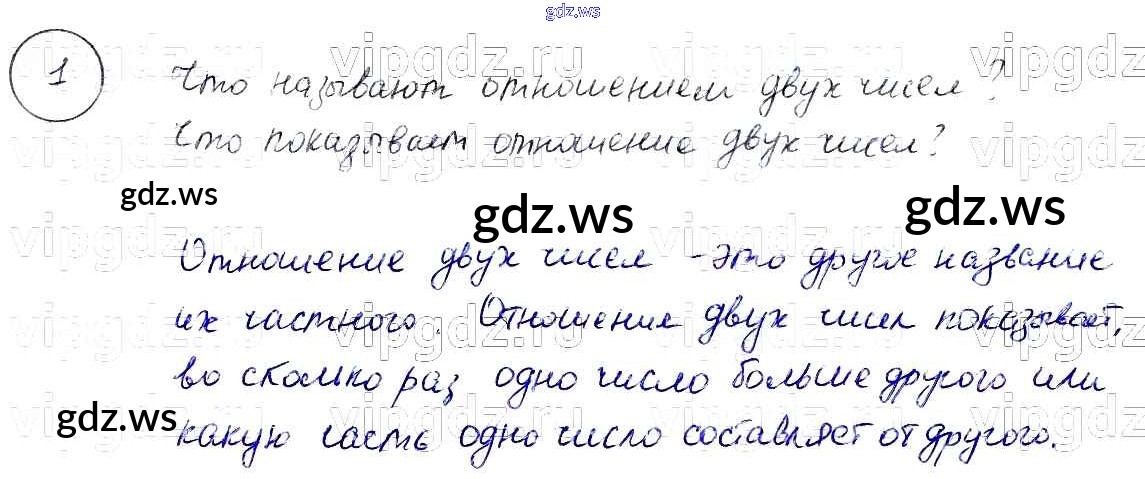 gdz.ws
1 Что называют отношением двух чисел?
Что показывает отношение двух чисел?
vipgdz.ru
gdz.ws gdz.ws gdz.ws
Отношение двух чисел - это другое название
их частного. Отношение двух чисел показывает,
во сколько раз одно число больше другого или
gdz.ws
какую часть одно число составляет от другого.